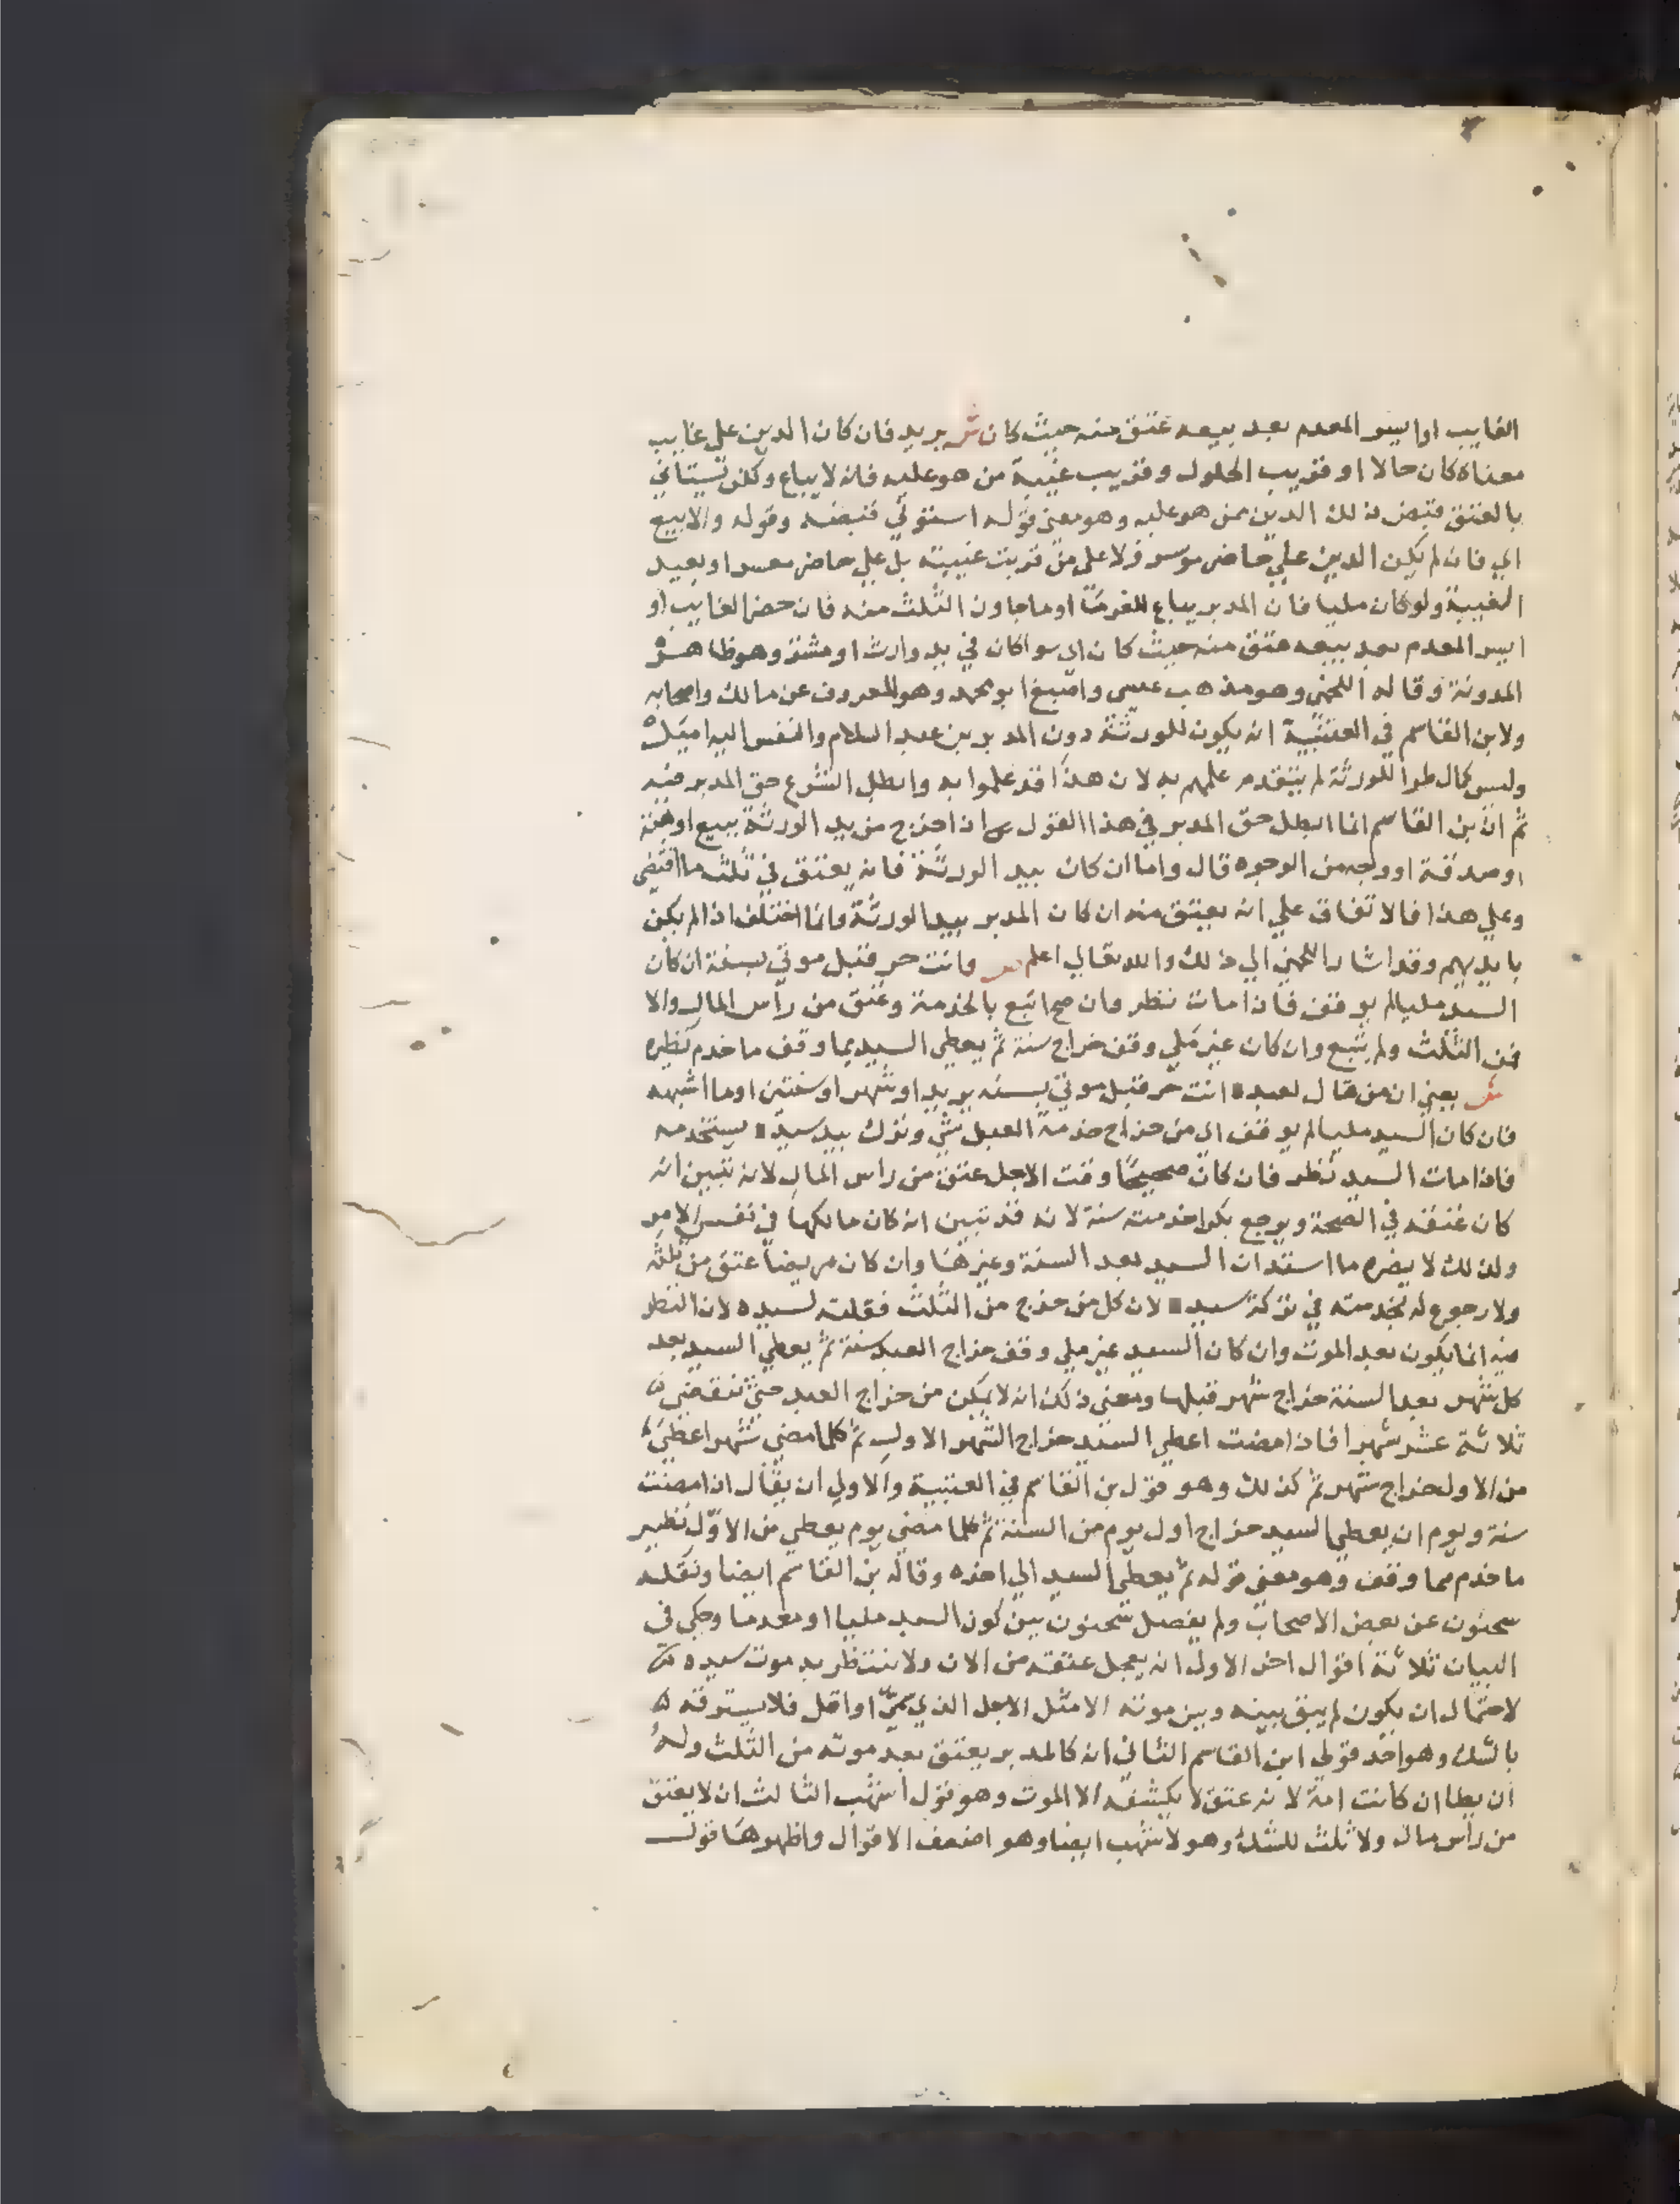 الغايب او ايسر المعدم بعد بيعه عتق منه حيث كان ش يريد فان كان الدين على غايب
معناه كان حالا او قريب الحلول وقريب غيبة من هو عليه فانه لا يباع ولكن يستاني
بالعتق قبض ذلك الدين ممن هو عليه وهو معنى قوله استوني قبضه وقوله والا بيع
اي فان لم يكن الدين علي حاضر موسر ولا على من قربت غيبته بل علي حاضر معسر او بعيد
الغيبة ولو كان مليا فان المدبر يباع للغرما او ما جاوز الثلث منه فان حضر الغايب او
ايسر المعدم بعد بيعه عتق منه حيث كان اي سوا كان في يد وارث او مشتر وهو ظاهر
المدونة وقاله اللخمي وهو مذهب عيسى واصبغ ابو محمد وهو المعروف عن مالك واصحابه
ولابن القاسم في العتبية انه يكون للورثة دون المدبر بن عبد السلام والنفس اليه اميل
وليس كمال طرا للورثة لم يتقدم علمهم به لان هذا قد علموا به وابطل الشرع حق المدبر منه
ثم ان بن القاسم انما ابطل حق المدبر في هذا القول اذا خرج من يد الورثة ببيع او هبة
او صدقة او وجه من الوجوه قال واما ان كان بيد الورثة فانه يعتق في ثلث ما اقتضى
وعلي هذا فالاتفاق علي انه يعتق منه ان كان المدبر بيد الورثة وانما اختلف اذا لم يكن
بايديهم وقد اشار اللخمي الي ذلك والله تعالي اعلم ص وانت حر قبل موتي بسنة ان كان
السيد مليا لم يوقف فاذا مات نظر فان صح اتبع بالخدمة وعتق من رأس المال والا
فمن الثلث ولم يتبع وان كان غير ملي وقف خراج سنة ثم يعطي السيد مما وقف ما خدم نظيره
ش يعني ان من قال لعبده انت حر قبل موتي بسنه يريد او شهر او سنتين او ما اشبهه
فان كان السيد مليا لم يوقف اي من خراج خدمة العبد شي وترك بيد سيده يستخدمه
فاذا مات السيد نظر فان كان صحيحًا وقت الاجل عتق من راس المال لانه تبين انه
كان عتقه في الصحة ويرجع بكرا خدمته سنة لانه قد تبين انه كان مالكها في نفس الامر
ولذلك لا يضره ما استدان السيد بعد السنة وغيرها وان كان مريضا عتق من ثلثه
ولا رجوع له بخدمته في تركة سيده لان كل من خرج من الثلث فغلته لسيده لان النظر
فيه انما يكون بعد الموت وان كان السيد غير ملي وقف خراج العبد سنة ثم يعطي السيد بعد
كل شهر بعد السنة خراج شهر قبلها ومعنى ذلك انه لا يمكن من خراج العبد حتى تنقضي
ثلاثة عشر شهرا فاذا مضت اعطي السيد خراج الشهر الاول ثم كلما مضي شهر اعطي
من الاول خراج شهر ثم كذلك وهو قول بن القاسم في العتبية والاولى ان يقال اذا مضت
سنة ويوم ان يعطي السيد خراج اول يوم من السنة ثم كلما مضي يوم يعطي من الاوّل نظير
ما خدم مما وقف وهو معنى قوله ثم يعطي السيد الي اخذه وقاله بن القاسم ايضا ونقله
سحنون عن بعض الاصحاب ولم يفصل سحنون بين كون السيد مليا او معدما وحكي في
البيان ثلاثة اقوال اخر الاول انه يعجل عتقه من الان ولا ينتظر به موت سيده
لاحتمال ان يكون لم يبق بينه وبين موته الا مثل الاجل الذي سمّى او اقل فلا يسترقه
بالشك وهو احد قولي ابن القاسم الثاني انه كالمدبر يعتق بعد موته من الثلث وله
ان يطا ان كانت امة لانه عتق لا يكشفه الا الموت وهو قول اشهب الثالث ان لا يعتق
من رأس مال ولا ثلث للشك وهو لاشهب ايضا وهو اضعف الاقوال واظهرها قول